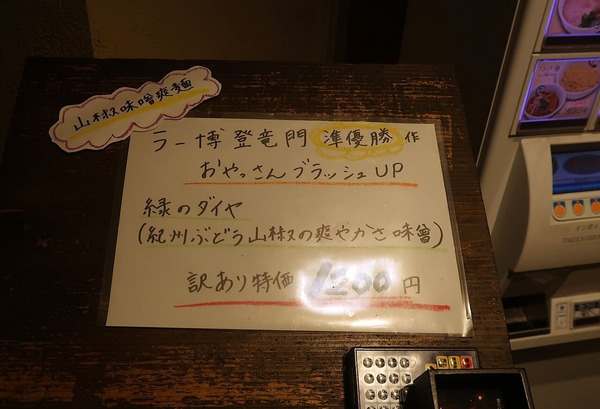 山椒味噌爽麺
ラー博登竜門 準優勝 作
おやっさん ブラッシュUP
緑のダイヤ
(紀州ぶどう山椒の爽やかさ味噌)
訳あり特価 1200円